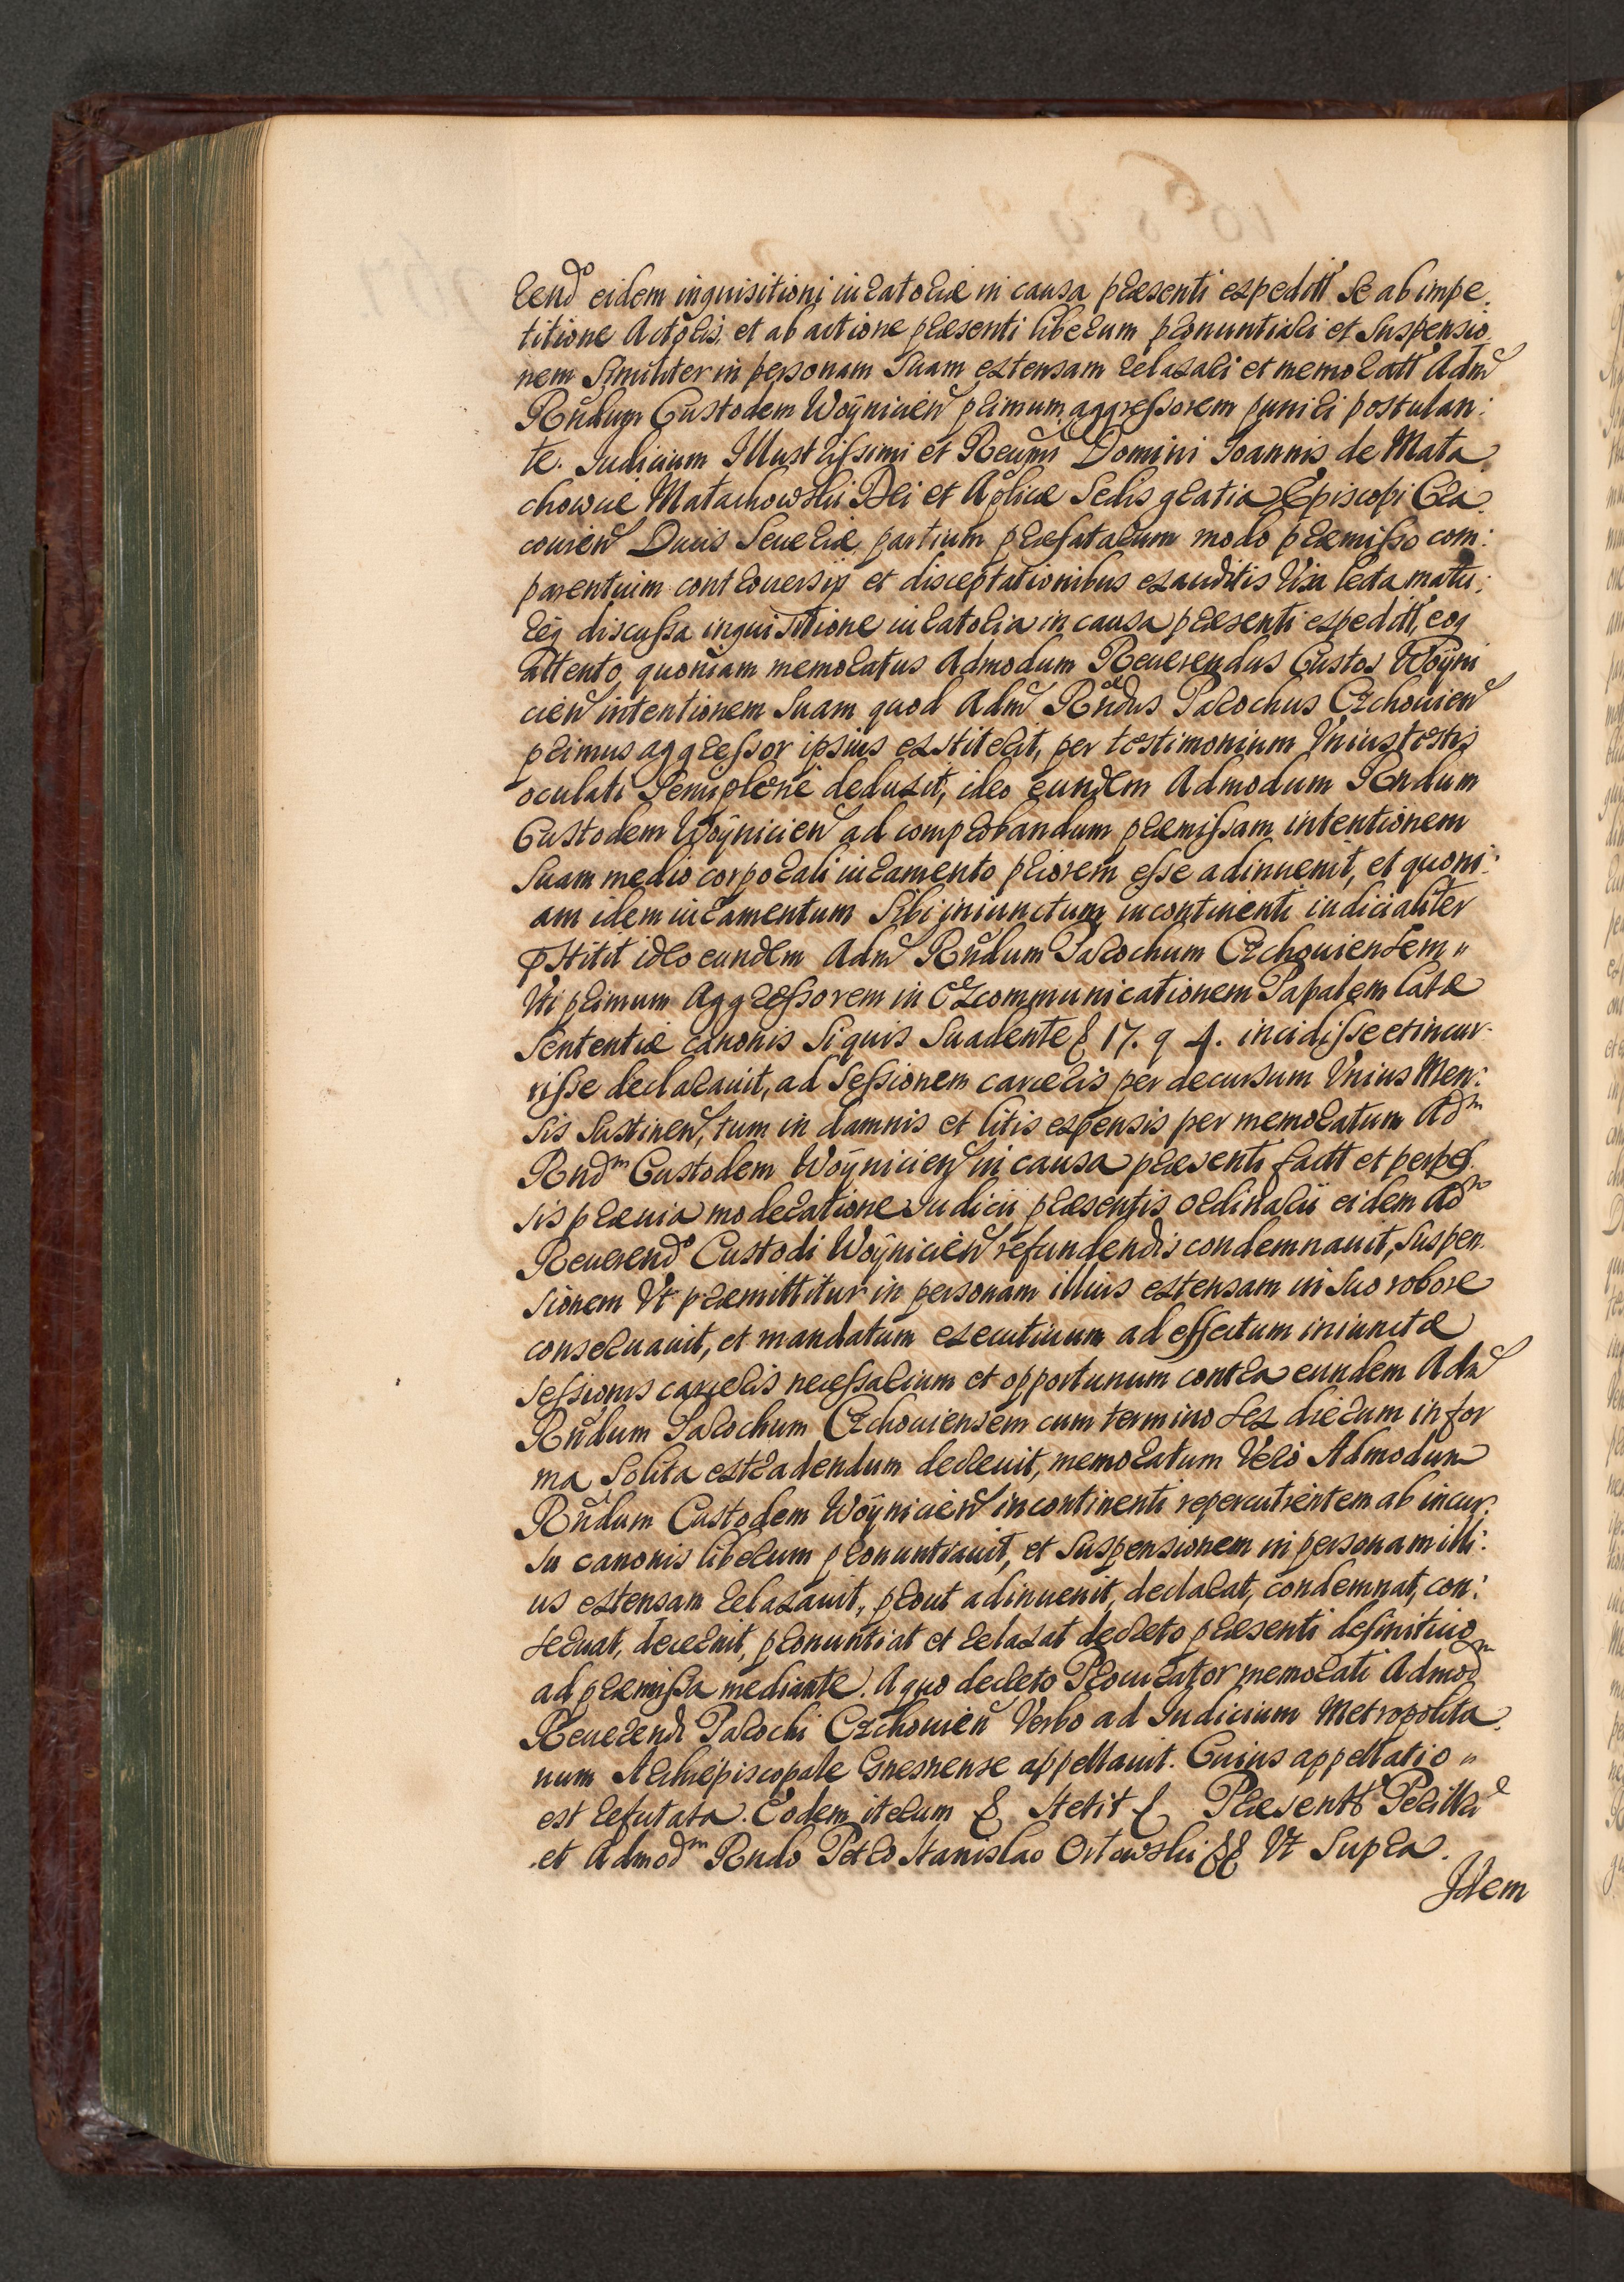 rend<sup>o</sup> eidem inquisitioni iuratoriæ in causa præsenti expeditt' se ab impe:
titione Actoris, et ab actione præsenti liberum pronuntiari et suspensio
nem similiter in personam suam extensam relaxari et memoratt' Adm̃
Rñdum Custodem Woÿnicien̄ primum aggressorem puniri postulan:
te. Judicium Illustrissimi et Reũmi Domini Joannis de Mała
chowice Małachowski Dei et Aplicæ Sedis gratia Episcopi Cra
couien̄ Ducis Seueriæ, partium præfatarum modo præmisso com:
parentium controuersijs et disceptationibus exauditis Visa lecta matu:
req̃ discussa inquisitione iuratoria in causa præsenti expeditt', eoq
attento, quoniam memoratus Admodum Reuerendus Custos Woÿni
cien̄ intentionem suam quod Adm̃ Rñdus Parochus Czchouien̄
primus aggressor ipsius exstiterit, per testimonium Vnius testis
oculati semiplene deduxit, ideo eundem Admodum Rendum
Custodem Woÿnicien̄ ad comprobandum præmissam intentionem
suam medio corporali iuramento priorem esse adinuenit, et quoni:
am idem iuramentum sibi iniunctum incontinenti iudicialiter
p̄stitit ideo eundem Adm̃ Rñdum Parochum Czchouiensem "
Vti primum Aggressorem in Excommunicationem Papalem latæ
sententiæ canonis Siquis Suadente & 17. q 4. incidisse et incur
risse declarauit, ad sessionem carceris per decursum Vnius Men:
sis sustinen̄, tum in damnis et litis expensis per memoratum Ad<sup>m</sup>
Rnd<sup>m</sup> Custodem Woÿnicien̄ in causa præsenti factt et perpes
sis præuia moderatione Judicii præsentis ordinarii eidem Ad<sup>m</sup>
Reuerend<sup>o</sup> Custodi Woÿnicien̄ refundendis condemnauit, suspen
sionem Vt præmittitur in personam illius extensam in suo robore
conseruauit, et mandatum executiuum ad effectum iniunctæ
sessionis carceris necessarium et opportunum contra eundem Adm̃
Rñdum Parochum Czchouiensem cum termino sex dierum in for
ma solita extradendum decreuit, memoratum Vero Admodum
Rñdum Custodem Woÿnicien̄ incontinenti repercutientem ab incur:
su canonis liberum pronuntiauit, et suspensionem in personam illi:
us extensam relaxauit, prout adinuenit, declarat, condemnat, con:
seruat, decernit, pronuntiat et relaxat decreto præsenti definitiuo
ad præmissa mediante. A quo decreto Procurator memorati Admod<sup>m</sup>
Reuerendi Parochi Czchouien̄ Verbo ad Judicium Metropolita
num Archiepiscopale Gnesnense appellauit. Cuius appellatio "
est refutata. Eodem iterum & stetit & Præsentt'
et Admod<sup>m</sup> Rndo Petro Stanislao Orłowski && Vt Supra.
Idem